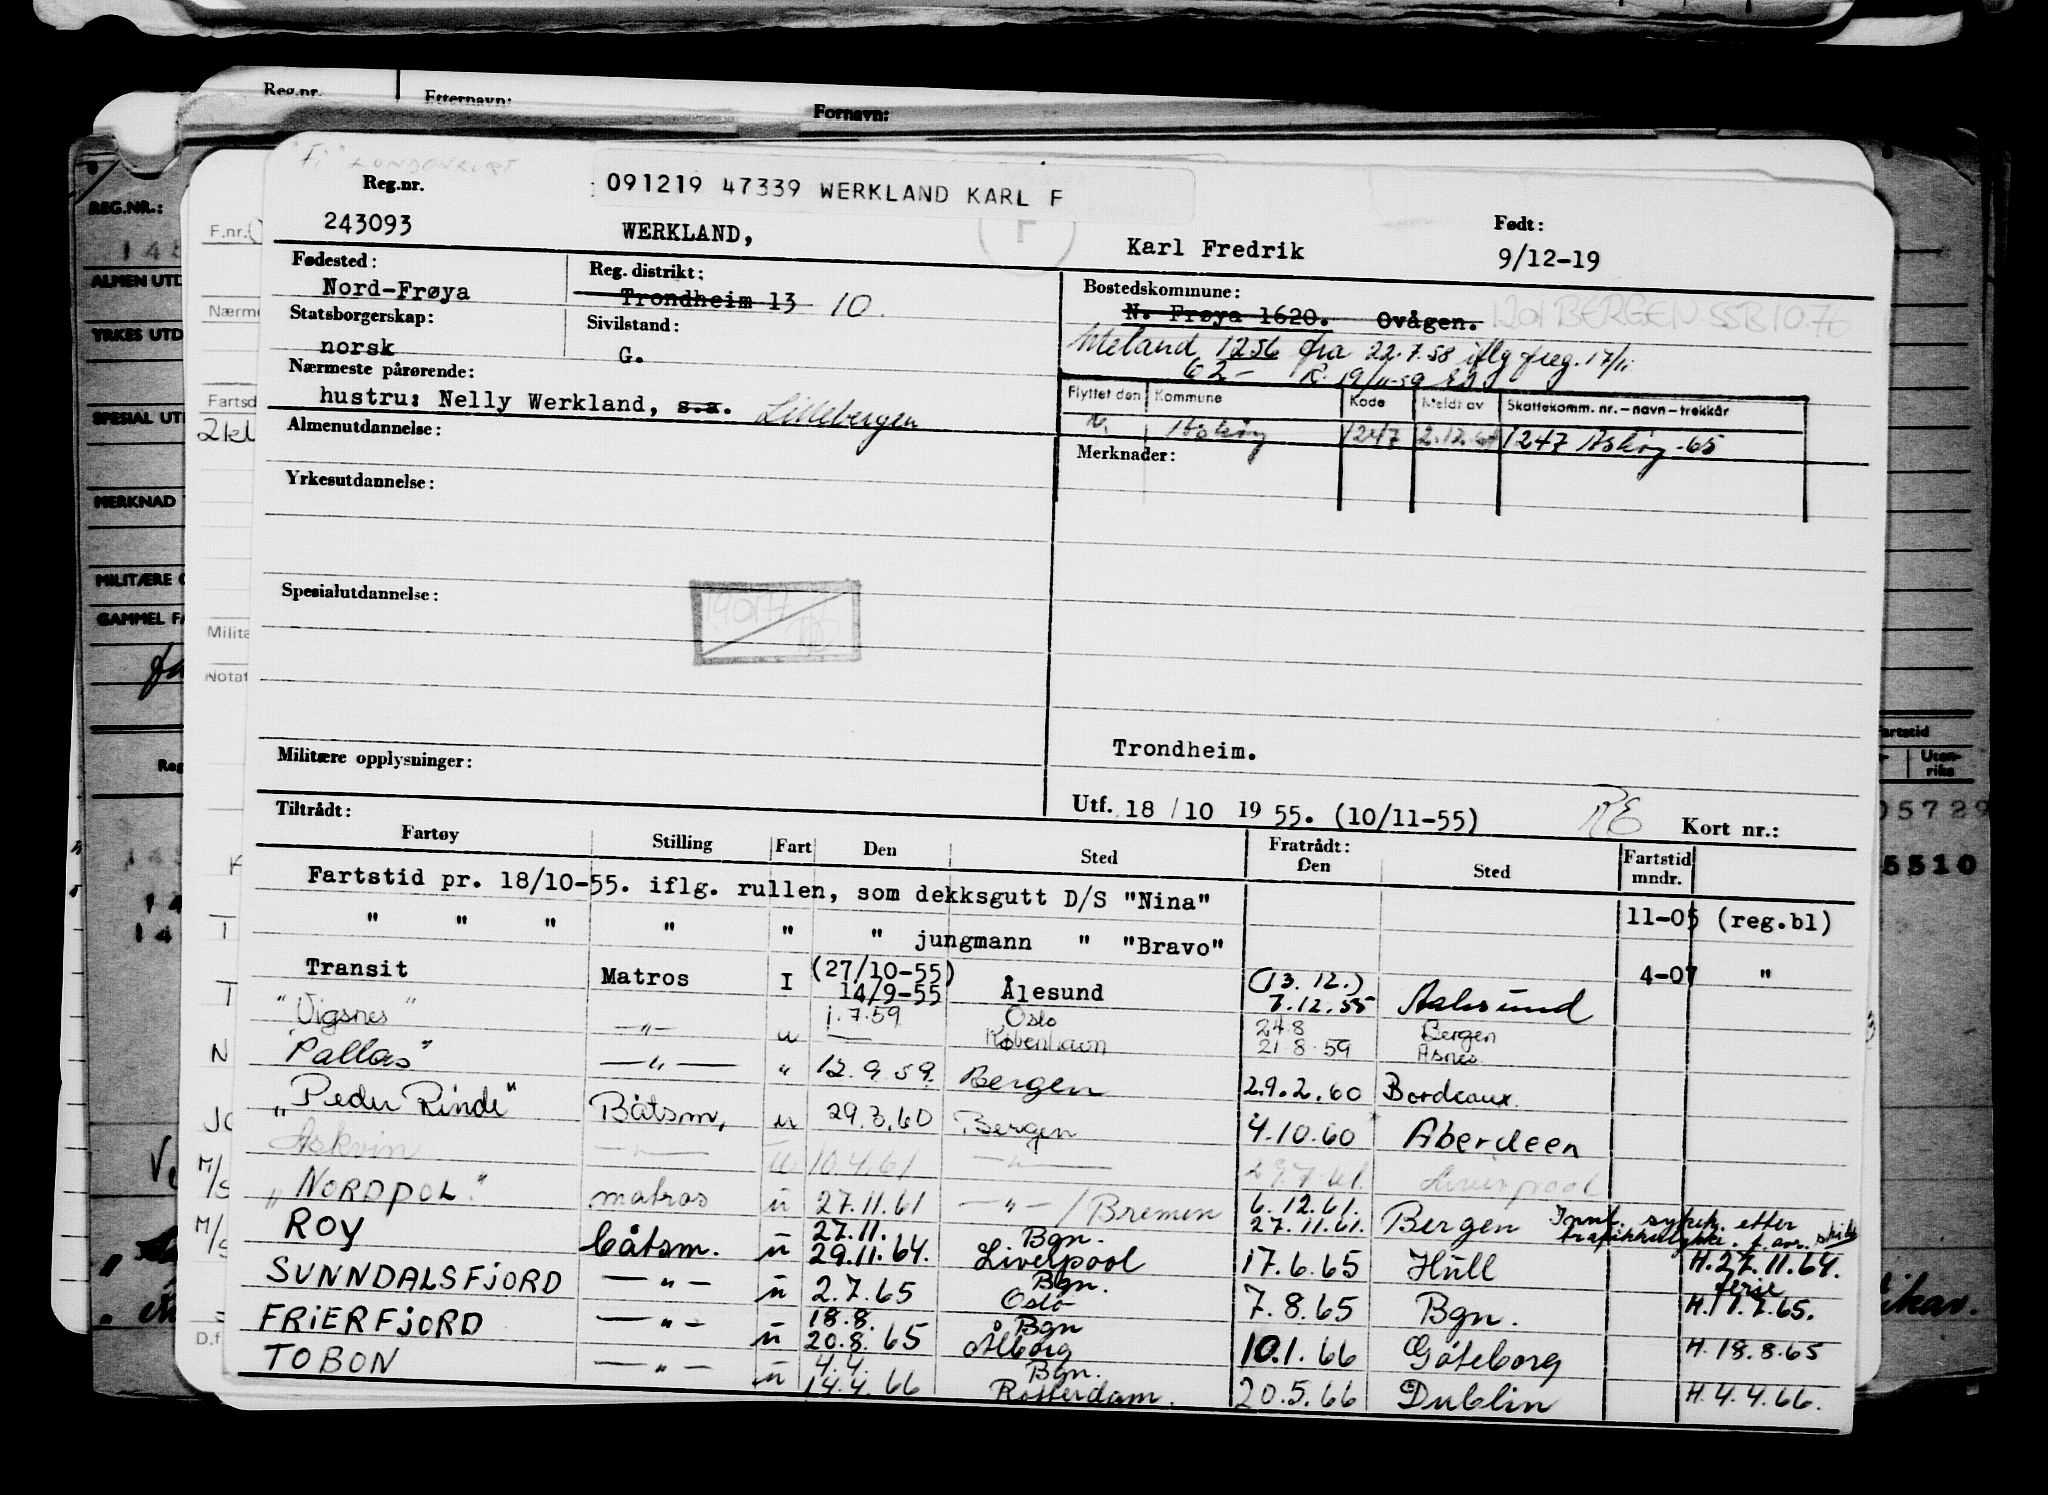 Reg.nr.
Etternavn:
Fornavn:
"Fi" LONDONKORT
091219 47339 WERKLAND KARL F
Reg.nr.
243093
WERKLAND,
Karl Fredrik
Født:
9/12-19
F
Fødested:
Nord-Frøya
Reg. distrikt:
Trondheim 13 10.
Bostedskommune:
N. Frøya 1620. Ovågen. 1201 BERGEN SSB 10.76
Statsborgerskap:
norsk
Sivilstand:
G.
Meland 1256 fra 22.7.58 iflg freg. 17/11
62- R. 19/11-59
Nærmeste pårørende:
hustru: Nelly Werkland, s.a. Lillebergen
Flyttet den Kommune Kode Meldt av Skattekomm. nr. – navn – trekkår
Askøy 1247 2.12.64 1247 Askøy -65
Almenutdannelse:
Merknader:
Yrkesutdannelse:
Spesialutdannelse:
190177
Militære opplysninger:
Trondheim.
Utf. 18/10 1955. (10/11-55) RE Kort nr.:
Tiltrådt:
Fartøy Stilling Fart Den Sted Fratrådt: Den Sted Fartstid mndr.
Fartstid pr. 18/10-55. iflg. rullen, som dekksgutt D/S "Nina" 11-05 (reg.bl)
" " " " " " jungmann " "Bravo" 4-07 "
Transit Matros I (27/10-55) 14/9-55 Ålesund (13.12.) 7.12.55 Aalesund
"Vigsnes" —"— u 1.7.59 Oslo 24.8 Bergen
— København 21.8.59 Asnes
"Pallas" —"— " 12.9.59. Bergen 29.2.60 Bordeaux.
"Peder Rinde" Båtsm, u 29.3.60 Bergen 4.10.60 Aberdeen
Askvin —"— u 10.4.61 —"— 29.7.61. Liverpool
"NORDPOL." matros u 27.11.61 —"—/Bremen 6.12.61. 27.11.61. Bergen Innt. sykeh. etter trafikkulykke. f. avr. skib
ROY båtsm. u 27.11. 29.11.64. Bgn. Liverpool 17.6.65 Hull H.27.11.64.
SUNNDALSFJORD —"— u 2.7.65 Bgn. Oslo 7.8.65 Bgn. ferie H.1.7.65.
FRIERFJORD —"— u 18.8. 20.8.65 Bgn Ålborg 10.1.66 Göteborg H.18.8.65
TOBON —"— u 4.4. 14.4.66 Bgn. Rotterdam. 20.5.66 Dublin H.4.4.66.
REG.NR.:
ALMEN UTD
YRKES UTD
SPESIAL UT
MERKNAD
MILITÆRE O
GAMMEL FA
F.nr.
Nærme
Fartsd
2kl
Milita
Notat
Reg
Fartstid
Uten-
riks
05729
5510
D.f